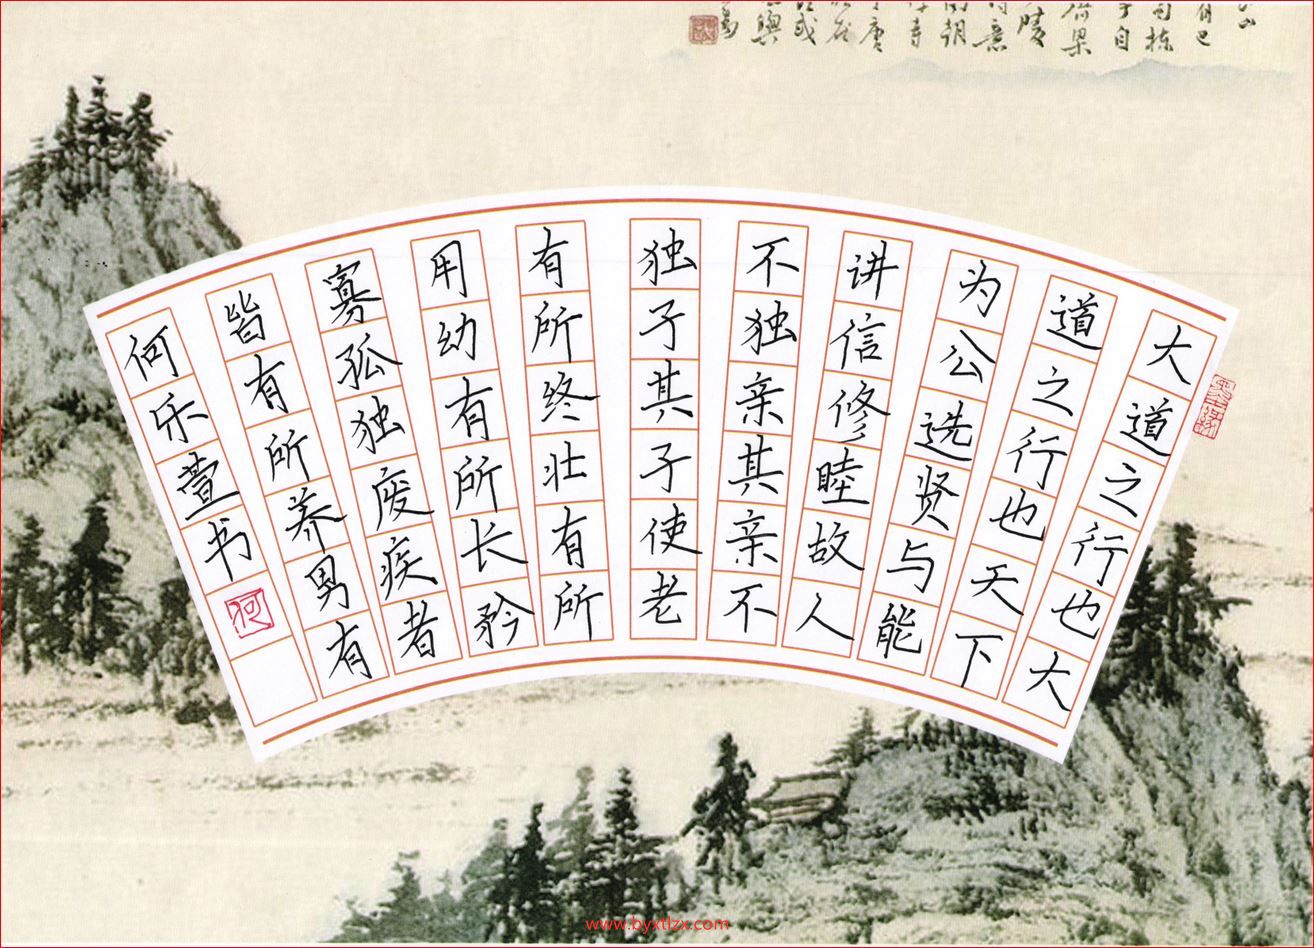 大道之行也大
道之行也天下
为公选贤与能
讲信修睦故人
不独亲其亲不
独子其子使老
有所终壮有所
用幼有所长矜
寡孤独废疾者
皆有所养男有
何乐萱书
何
www.byxtlzx.com